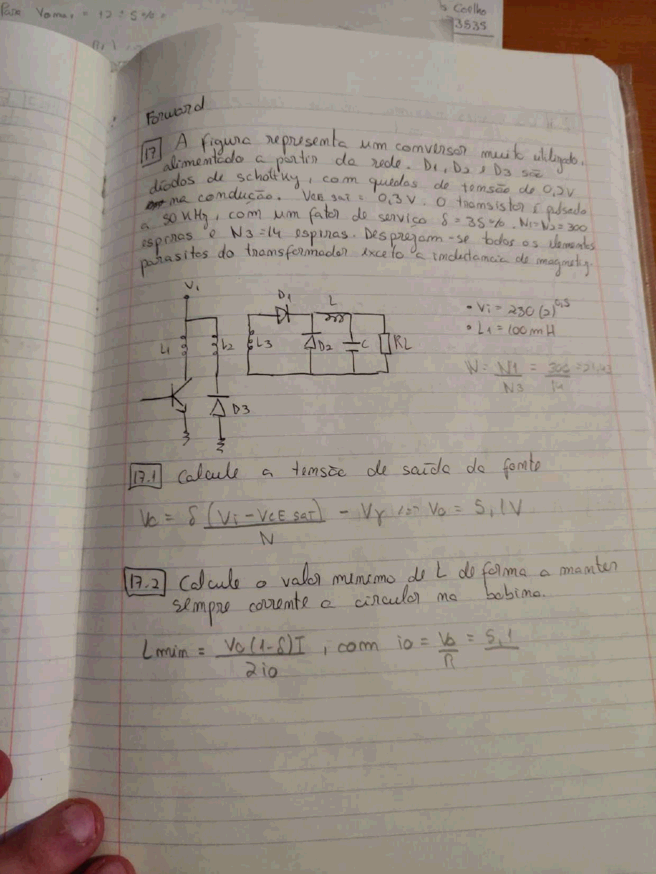 Coelho
3535
Forward
17 A figura representa um conversor muito utilizado,
alimentado a partir da rede. D1, D2 e D3 são
díodos de schottky, com quedas de tensão de 0,2V
na condução. VCE sat = 0,3V. O transistor é pulsado
a 50 KHz, com um fator de serviço δ = 35%. N1=N2=300
espiras e N3=14 espiras. Desprezam-se todos os elementos
parasitos do transformador exceto a indutância de magnetiz.
V1
D1
L
• Vi = 230√2
• L1 = 100mH
L1
L2
L3
D2
C
RL
N = N1/N3 = 300/14
D3
17.1 Calcule a tensão de saída da fonte
Vo = δ (Vi - VCE sat)/N - Vγ <=> Vo = 5,1V
17.2 Calcule o valor mínimo de L de forma a manter
sempre corrente a circular na bobina.
Lmin = Vo(1-δ)T/2io , com io = Vo/R = 5,1